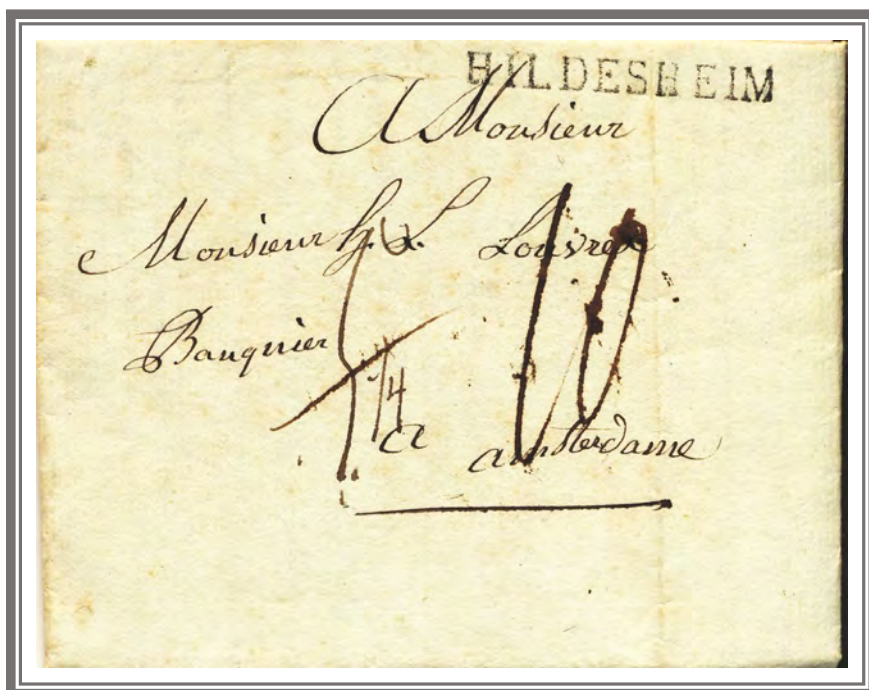 HILDESHEIM
A Monsieur
Monsieur H. L. Louvrex
Banquier
1/4
10
a amsterdame